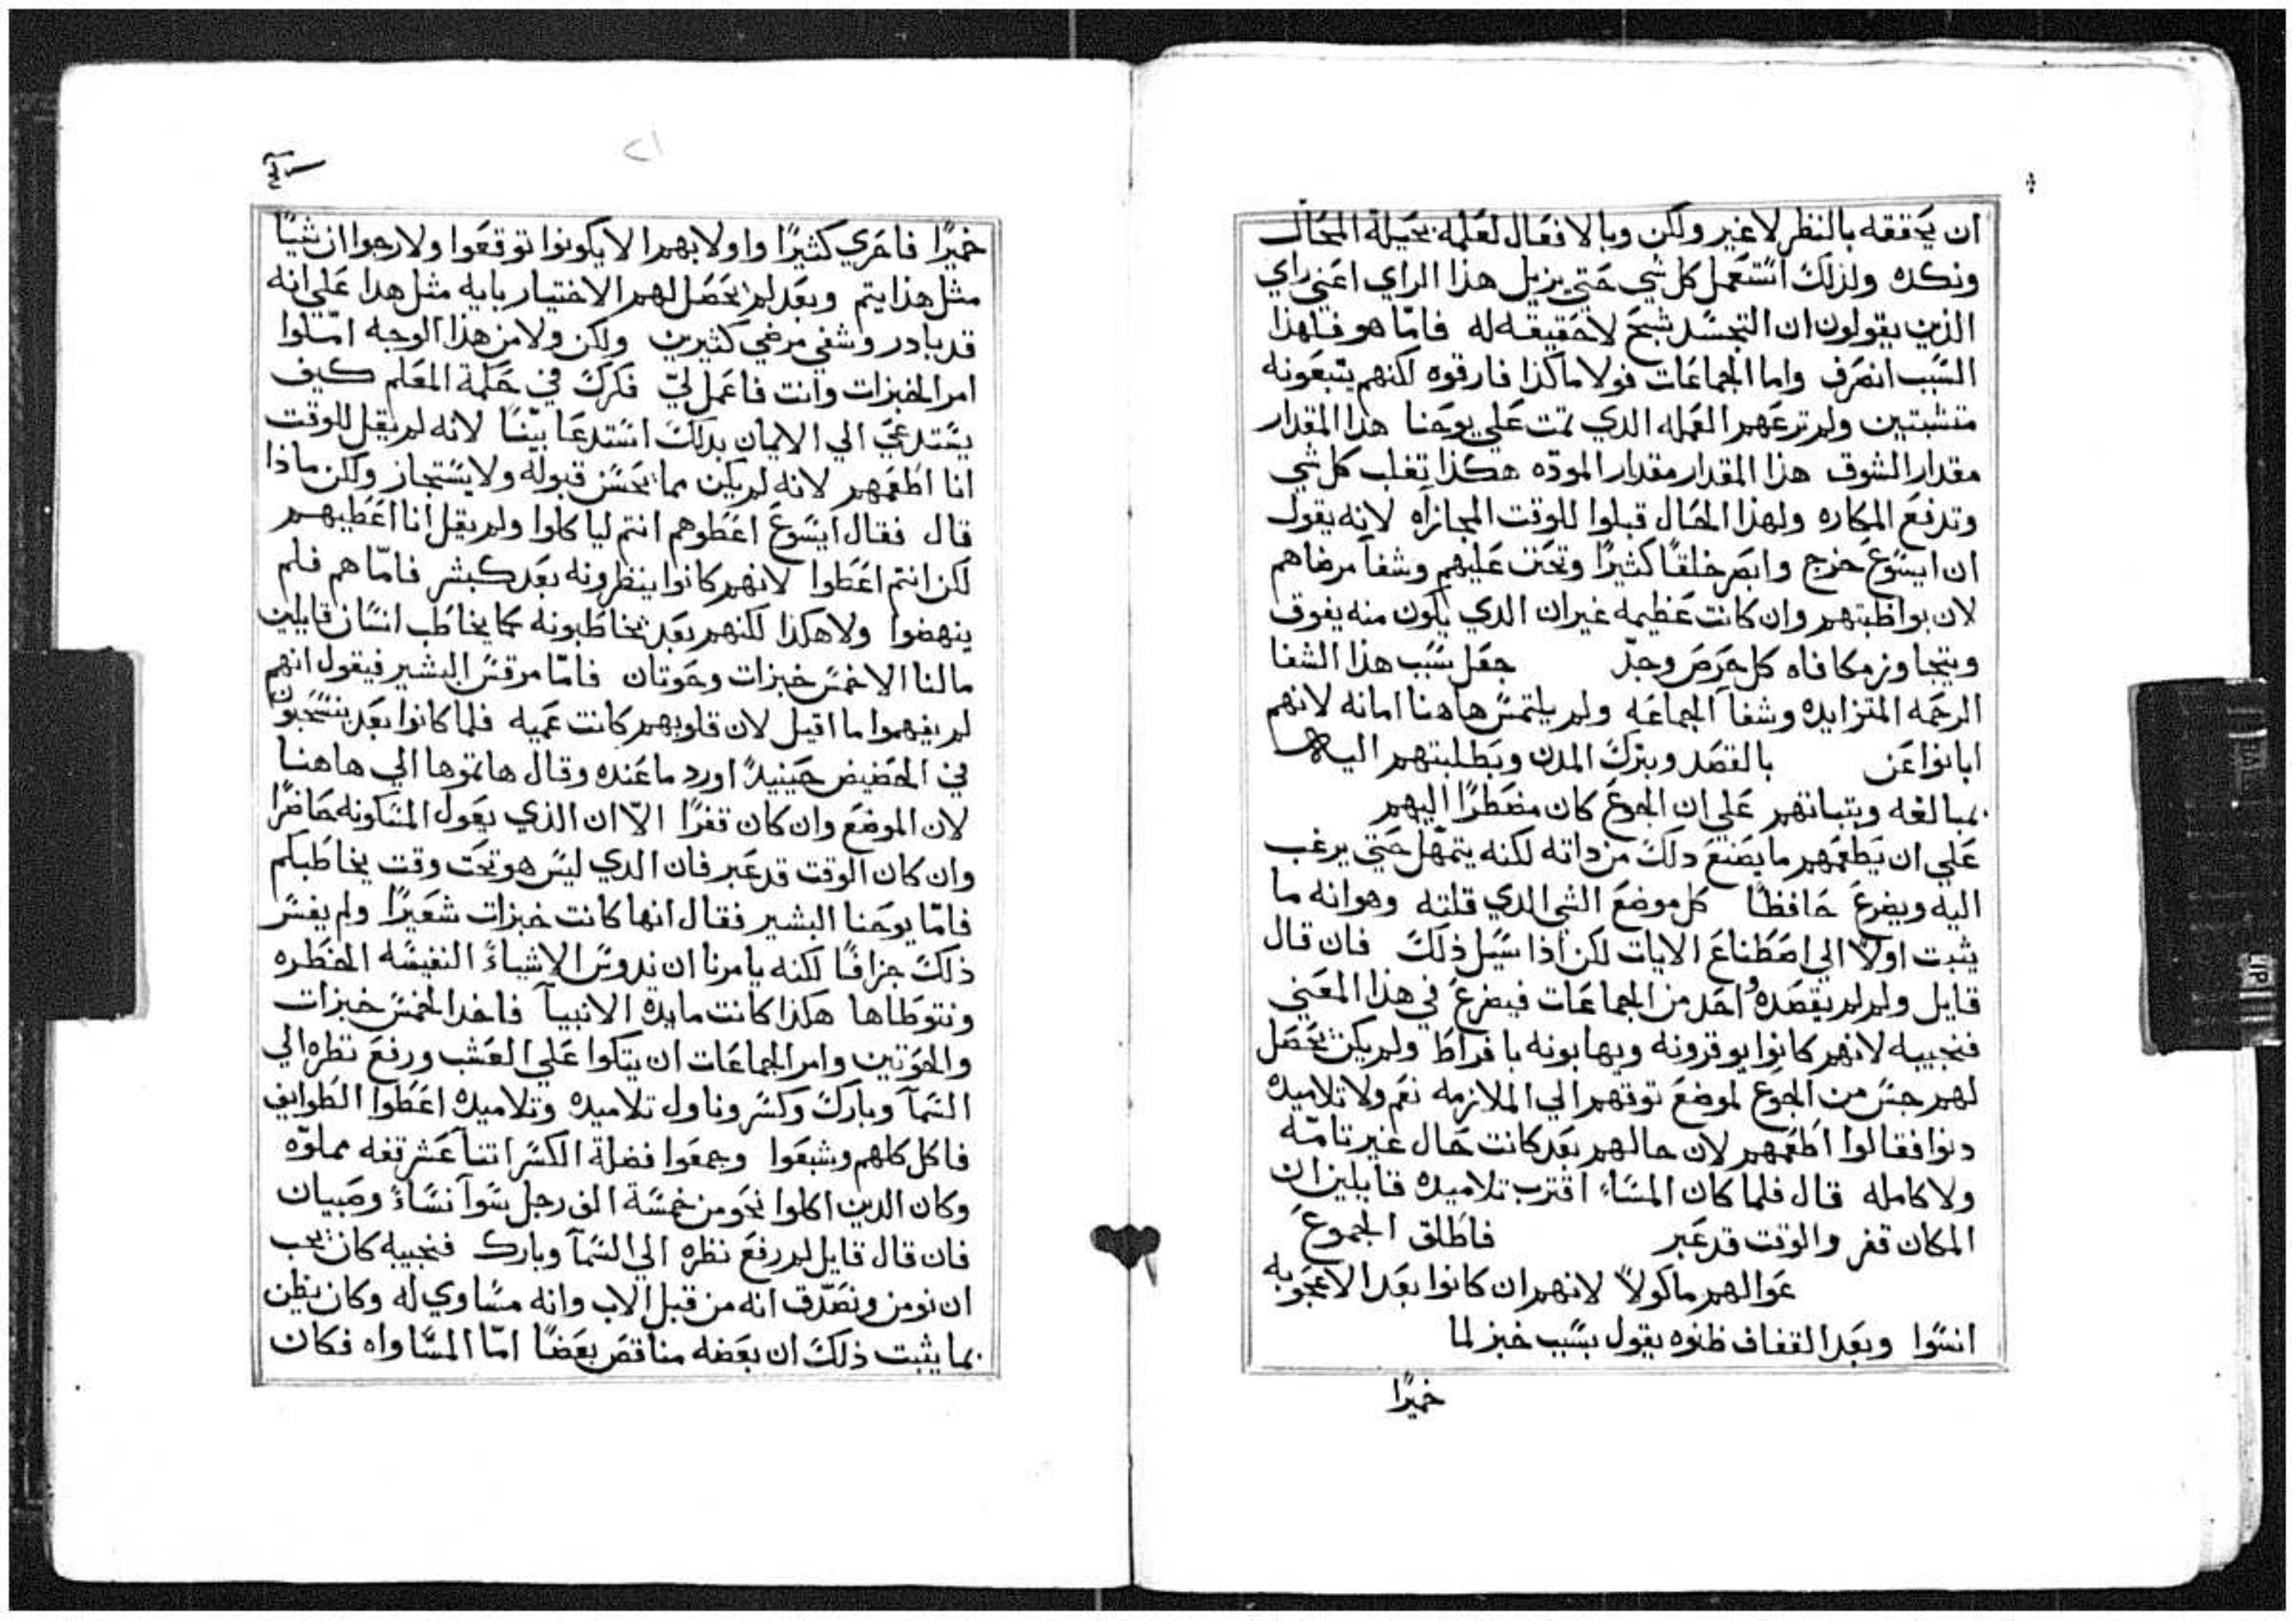 ان يحققه بالنظر لا غير ولكن وبالافعال لعلمه بحيلة المحال
ونكده ولذلك استعمل كل شي حتي يزيل هذا الراي اعني راي
الذين يقولون ان التجسد شبح لا حقيقه له فامّا هو فلهذا
السبب انصرف واما الجماعات فولا ماكذا فارقوه لكنهم يتبعونه
متشبتين ولم ترعهم العمله الدي تمت علي يوحنا هدا المقدار
مقدار الشوق هذا المقدار مقدار المودّه هكذا تغلب كل شي
وتدفع المكاره ولهذا الحال قبلوا للوقت المجازاه لانه يقول
ان ايسوع خرج وابصر خلقًا كثيرًا وتحنن عليهم وشفا مرضاهم
لان بواظبتهم وان كانت عظيمه غير ان الدي يكون منه يفوق
ويتجاوز مكافاه كل حرص وجدّ جعل سبب هذا الشفا
الرحمه المتزايده وشفا الجماعه ولم يلتمس هاهنا امانه لانهم
ابانوا عن بالقصد وبترك المدن وبطلبتهم اليه
بمبالغه وبتباتهم علي ان الجوع كان مضطرًا اليهم
علي ان يطعمهم ما يصنع دلك من داته لكنه يتمهّل حتي يرغب
اليه ويضرع حافظًا كل موضع الشي الدي قلته وهو انه ما
يثبت اولاً الي اصطناع الايات لكن اذا سيل ذلك فان قال
قايل ولم لم يقصده احد من الجماعات فيضرع في هذا المعني
فنجيبه لانهم كانوا يوقرونه ويهابونه بافراط ولم يكن يحصل
لهم حس من الجوع لموضع توقهم الي الملازمه نعم ولا تلاميده
دنوا فقالوا اطعمهم لان حالهم بعد كانت حال غير تامّه
ولا كامله قال فلما كان المساء اقترب تلاميده قايلين ان
المكان قفر والوقت قد عبر فاطلق الجموع
عوا لهم ماكولاً لانهم ان كانوا بعد الاعجوبه
انسوا وبعد القفاف ظنوه يقول بسبب خبز لما
خميرًا
خميرًا فاحري كثيرًا واولا بهم الا يكونوا توقعوا ولا رجوا ان شيًا
مثل هذا يتم وبعد لم يحصل لهم الاختيار بايه مثل هدا علي انه
قد بادر وشفي مرضي كثيرين ولكن ولا من هذا الوجه امّلوا
امر الخبزات وانت فاعمل ليّ فكرك في حكمة المعلم كيف
يستدعي الي الايمان بدلك استدعا بيّنًا لانه لم يقل للوقت
انا اطعمهم لانه لم يكن مما يحسن قبوله ولا يستجاز ولكن ماذا
قال فقال ايسوع اعطوهم انتم لياكلوا ولم يقل انا اعطيهم
لكن انتم اعطوا لانهم كانوا ينظرونه بعد كبشر فامّا هم فلم
ينهضوا ولا هكذا لكنهم بعد يخاطبونه كما يخاطب انسان قايلين
مالنا الا خمس خبزات وحوتان فامّا مرقس البشير فيقول انهم
لم يفهموا ما اقيل لان قلوبهم كانت عميه فلما كانوا بعد ينسحبون
في الحضيض حينيدً اورد ما عنده وقال هاتوها الي هاهنا
لان الموضع وان كان قفرًا الاّ ان الذي يعول المسكونه حاضرًا
وان كان الوقت قد عبر فان الدي ليس هو تحت وقت يخاطبكم
فامّا يوحنا البشير فقال انها كانت خبزات شعيرًا ولم يفسر
ذلك جزافًا لكنه يامرنا ان ندوس الاشياءً النفيسه الخطره
ونتوطاها هكذا كانت مايده الانبيآ فاخدا الخمس خبزات
والحوتين وامر الجماعات ان يتكوا علي العشب ورفع نظره الي
السمآ وبارك وكسر وناول تلاميده وتلاميده اعطوا الطوايف
فاكل كلهم وشبعوا وجمعوا فضلة الكسر اتنا عشر قفه مملوّه
وكان الدين اكلوا نحو من خمسة الف رجل سوآ نساءً وصبيان
فان قال قايل لم رفع نظره الي السمآ وبارك فنجيبه كان يجب
ان نومن ونصدّق انه من قبل الاب وانه مساوي له وكان يظن
بما يثبت ذلك ان بعضه مناقض بعضًا امّا المساواه فكان